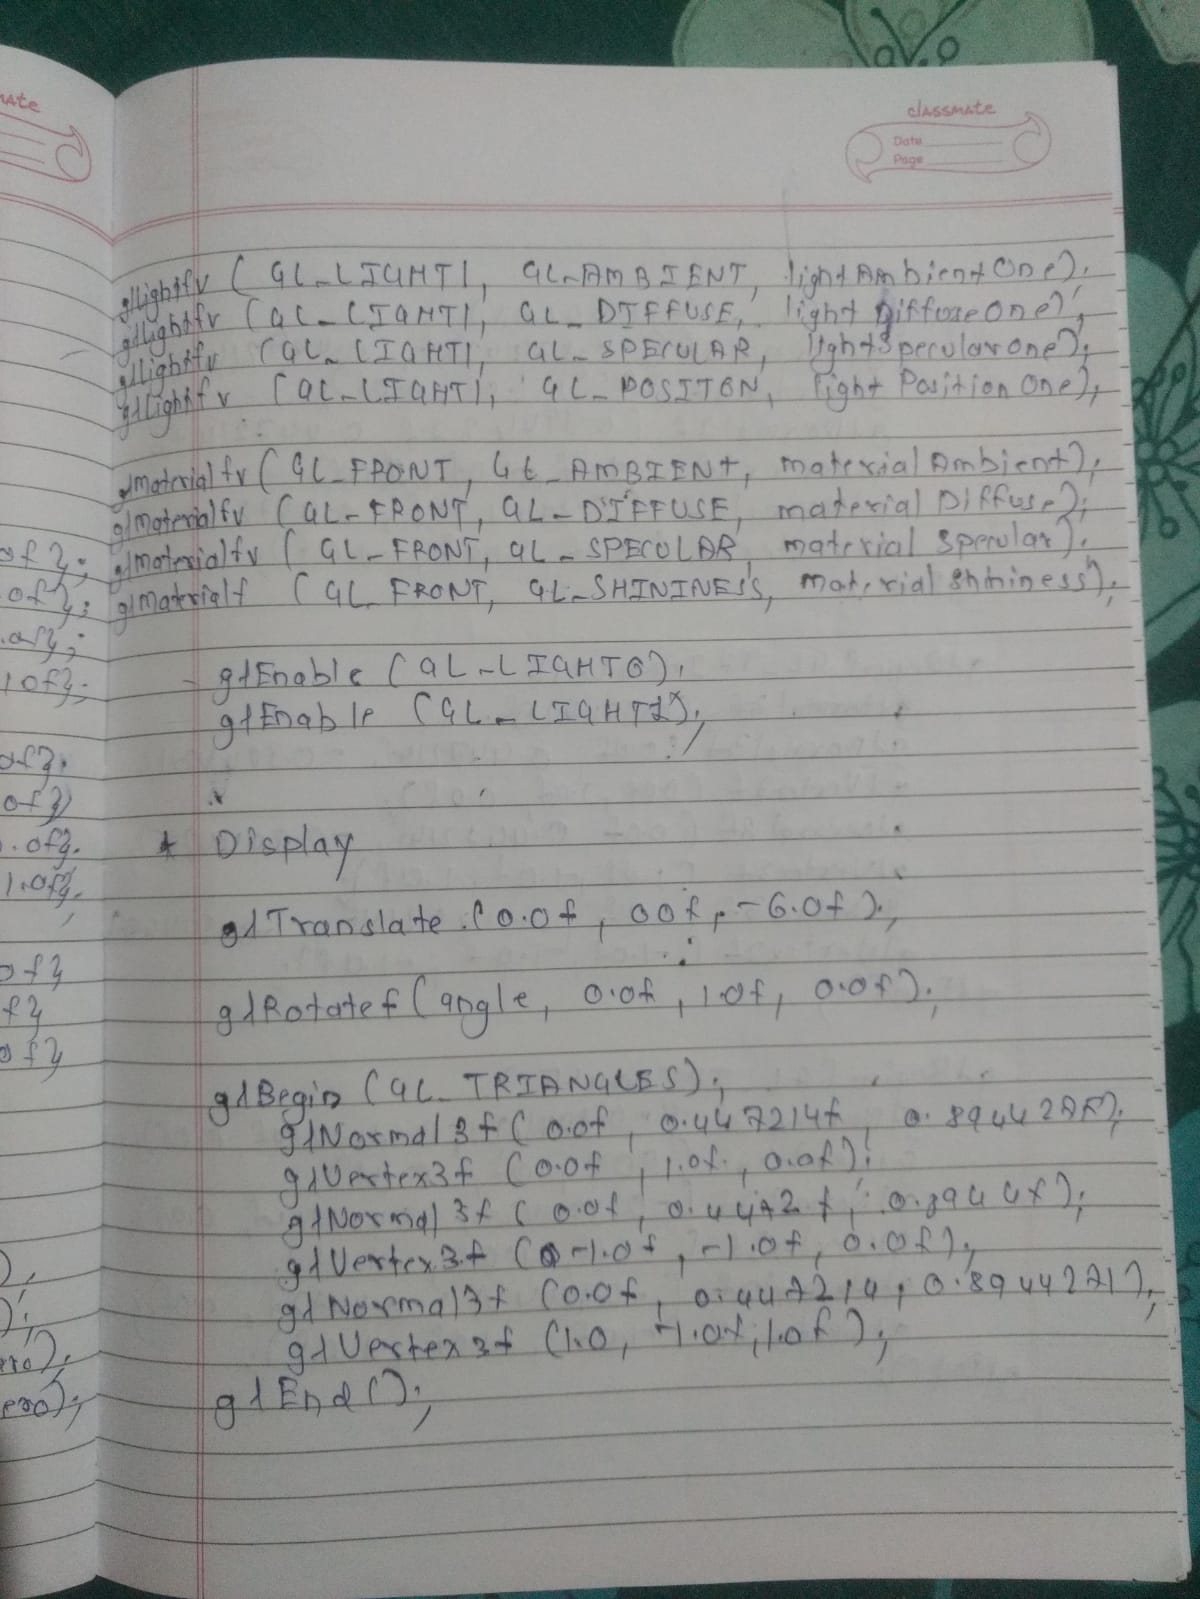 mate
classmate
Date
Page
glLightfv ( GL_LIGHT1, GL_AMBIENT, lightAmbientOne);
glLightfv (GL_LIGHT1, GL_DIFFUSE, lightDiffuseOne);
glLightfv (GL_LIGHT1, GL_SPECULAR, lightSpecularOne);
glLightfv (GL_LIGHT1, GL_POSITON, light Position One);
glmaterialfv ( GL_FRONT, GL_AMBIENt, materialAmbient);
glmaterialfv (GL_FRONT, GL_DIFFUSE, material Diffuse);
glmaterialfv ( GL_FRONT, GL_SPECULAR, material Specular);
glmaterialf (GL_FRONT, GL_SHININESS, material Shininess);
glEnable (GL_LIGHT0);
glEnable (GL_LIGHT1);
* Display
glTranslate (0.0f, 00f, -6.0f);
glRotatef (angle, 0.0f, 1.0f, 0.0f);
glBegin (GL_TRIANGLES);
glNormal3f ( 0.0f, 0.447214f, 0.894427f);
glVertex3f (0.0f, 1.0f, 0.0f);
glNormal3f ( 0.0f, 0.4472f, 0.8944f);
glVertex3f (-1.0f, -1.0f, 0.0f);
glNormal3f (0.0f, 0.447214, 0.8944271);
glVertex3f (1.0, -1.0f, 1.0f);
glEnd();